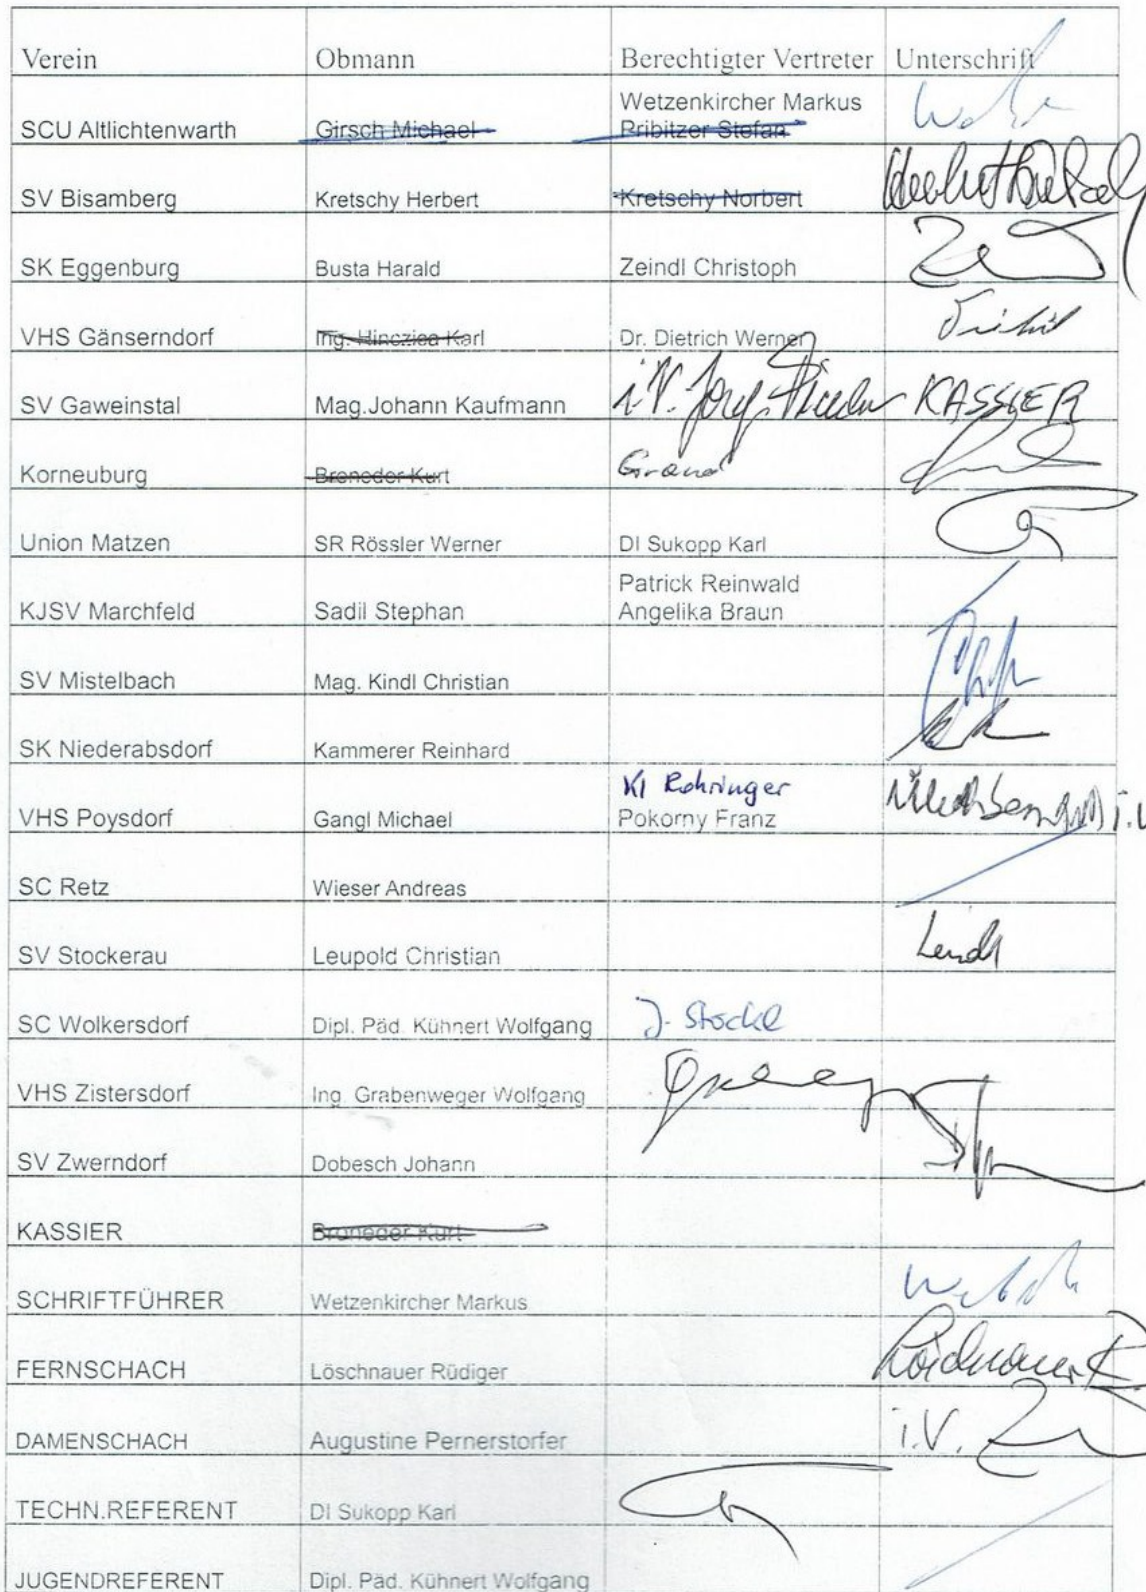 Verein Obmann Berechtigter Vertreter Unterschrift
Wetzenkircher Markus
SCU Altlichtenwarth Girsch Michael Pribitzer Stefan
SV Bisamberg Kretschy Herbert Kretschy Norbert
SK Eggenburg Busta Harald Zeindl Christoph
VHS Gänserndorf Ing. Karl Dr. Dietrich Werner
SV Gaweinstal Mag.Johann Kaufmann i.V. KASSIER
Korneuburg Broneder Kurt
Union Matzen SR Rössler Werner DI Sukopp Karl
Patrick Reinwald
KJSV Marchfeld Sadil Stephan Angelika Braun
SV Mistelbach Mag. Kindl Christian
SK Niederabsdorf Kammerer Reinhard
Kl Rohringer
VHS Poysdorf Gangl Michael Pokorny Franz i.V.
SC Retz Wieser Andreas
SV Stockerau Leupold Christian
SC Wolkersdorf Dipl. Päd. Kühnert Wolfgang J. Stöckl
VHS Zistersdorf Ing. Grabenweger Wolfgang
SV Zwerndorf Dobesch Johann
KASSIER Broneder Kurt
SCHRIFTFÜHRER Wetzenkircher Markus
FERNSCHACH Löschnauer Rüdiger
DAMENSCHACH Augustine Pernerstorfer i.V.
TECHN.REFERENT DI Sukopp Karl
JUGENDREFERENT Dipl. Päd. Kühnert Wolfgang